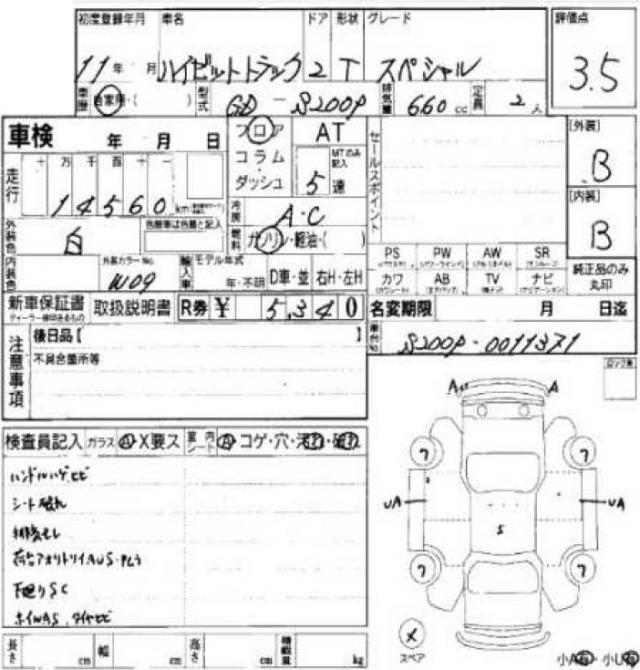 初度登録年月 車名 ドア 形状 グレード 評価点
11年 月 ハイゼットトラック 2 T スペシャル 3.5
車歴 自家用・( ) 型式 GD-S200P 排気量 660cc 定員 2人
車検 年 月 日 フロア AT セールスポイント [外装]
コラム MTのみ記入 B
ダッシュ 5速
走行 十 万 千 百 十 一
14560 km 冷房 A・C [内装]
外装色 白 色替車は色番と記入 燃料 ガソリン・軽油・( ) B
内装色 外装カラーNo. W09 輸入車 モデル年式 年・不明 D車・並 右H・左H
PS PW AW SR 純正品のみ丸印
カワ AB TV ナビ
新車保証書 取扱説明書 R券 ¥ 5,340 名変期限 月 日迄
ディーラー捺印あるもの
注意事項 後日品【 車台No. S200P-0011371
不具合箇所等
検査員記入 ガラス A・X要ス 室内シート A・コゲ・穴・汚れ・破れ
シート破れ
下廻りSC
A A
ワ ワ
UA UA
S
ワ ワ
X
スペア
長さ cm 幅 cm 高さ cm 積載量 kg